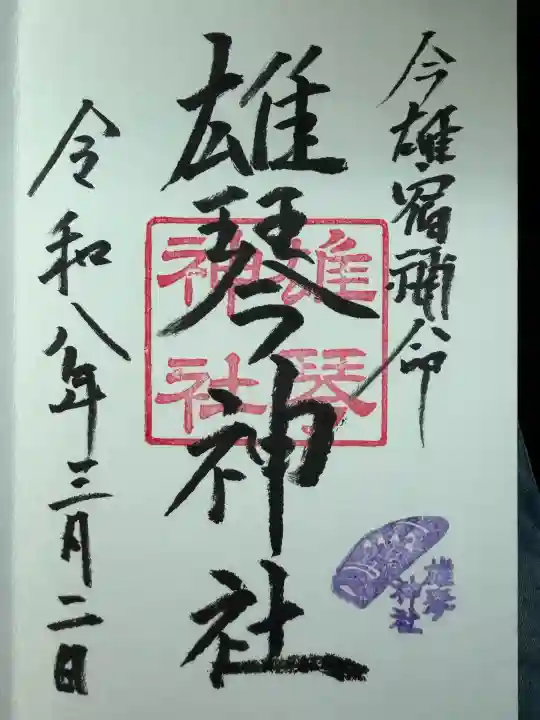 今雄宿祢命
雄琴神社
雄琴
神社
令和八年三月二日
雄琴
神社